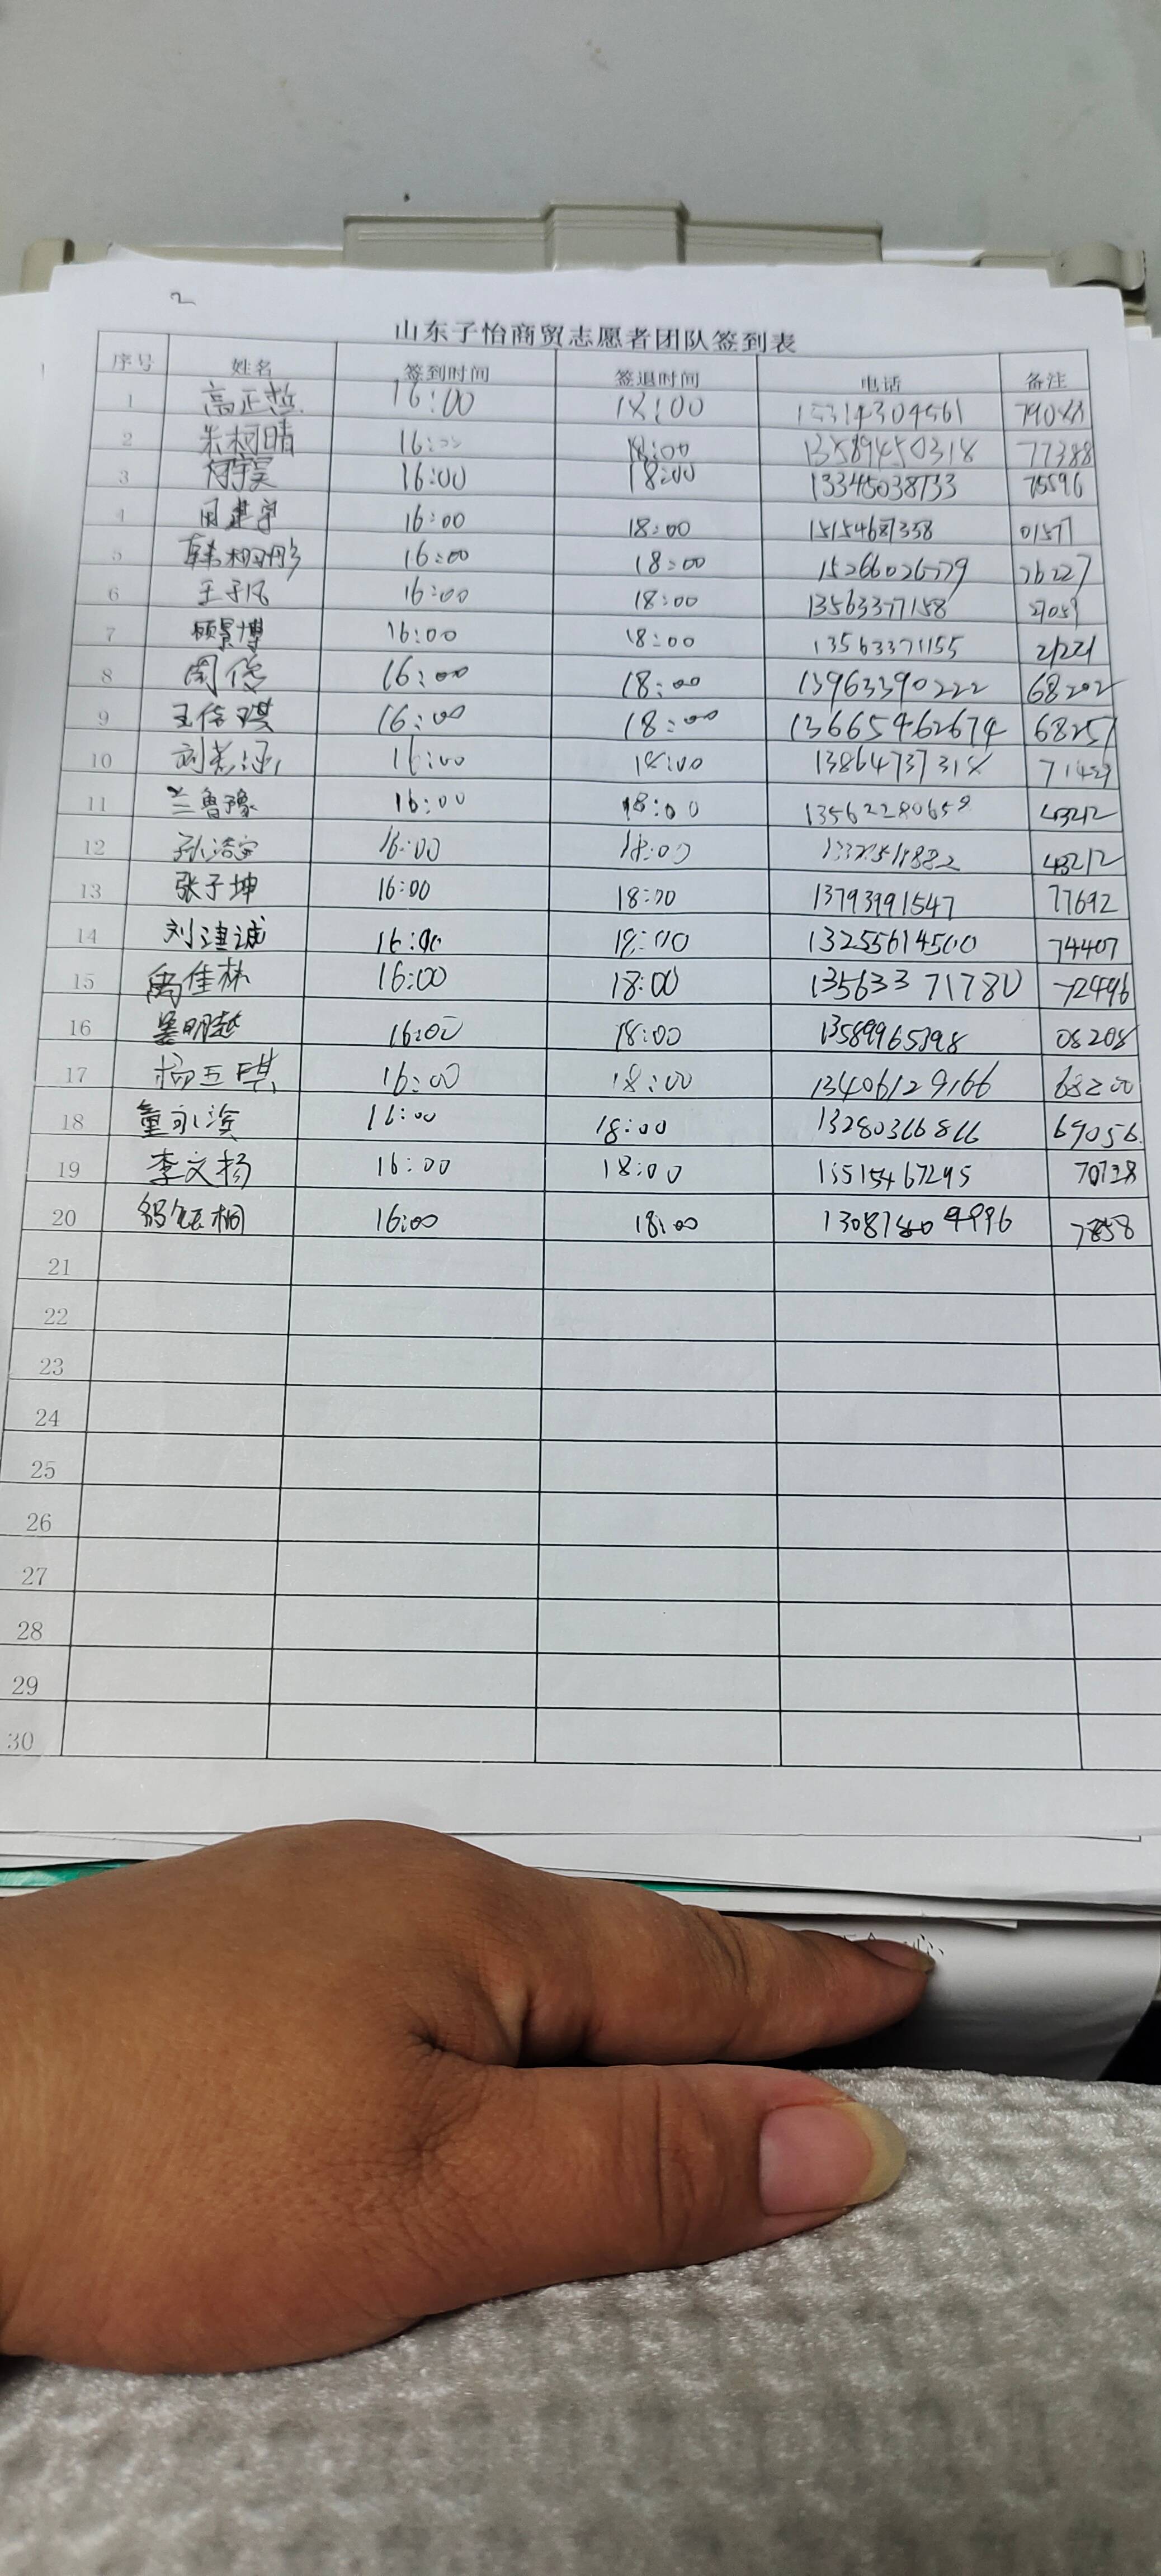 2
山东子怡商贸志愿者团队签到表
序号 姓名 签到时间 签退时间 电话 备注
1 高正哲 16:00 18:00 15314304561
2 朱柯晴 16:00 18:00 13589450318 77388
3 16:00 18:00 13345038733 75596
4 周建宇 16:00 18:00 15154687358 01577
5 韩栩彤 16:00 18:00 15266026579 26227
6 16:00 18:00 13563377158 27059
7 顾景博 16:00 18:00 13563371155 21221
8 周俊 16:00 18:00 13963390222 68202
9 王信琪 16:00 18:00 13665462674 68251
10 16:00 18:00 13864737318 71429
11 兰鲁豫 16:00 18:00 13562280659 43212
12 16:00 18:00 43212
13 张子坤 16:00 18:00 13793991547 77692
14 刘津诚 16:00 18:00 13255614500 74407
15 禹佳林 16:00 18:00 13563371780 72496
16 16:00 18:00 13589965398 08208
17 杨玉琪 16:00 18:00 13406129166 68200
18 董永滨 16:00 18:00 13280366866 69056
19 李文扬 16:00 18:00 15515467295 70738
20 16:00 18:00 7858
21
22
23
24
25
26
27
28
29
30
心